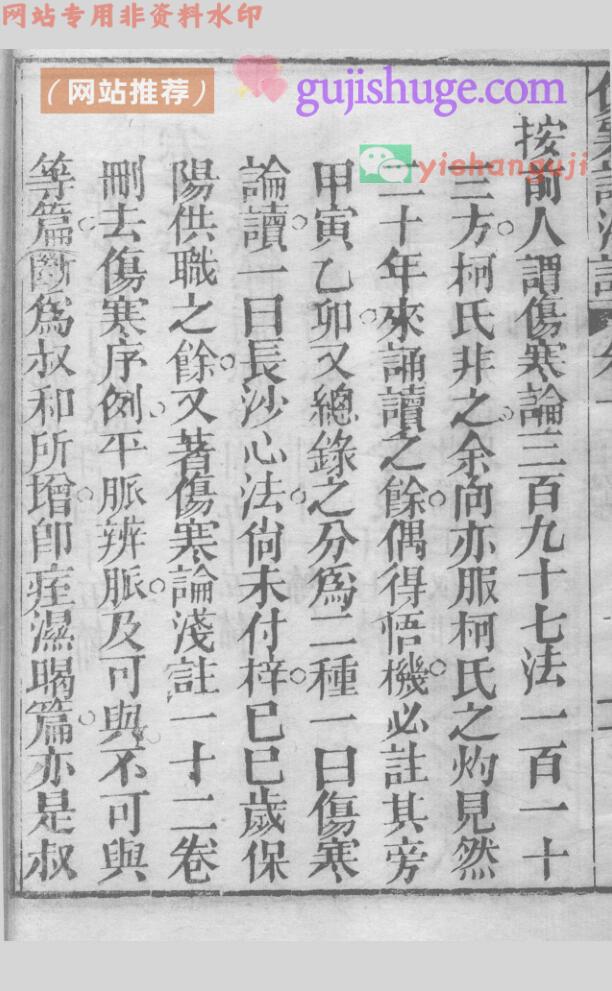 网站专用非资料水印
（网站推荐）
gujishuge.com
yishanguji
按前人謂傷寒論三百九十七法一百一十
三方柯氏非之余向亦服柯氏之灼見然
二十年來誦讀之餘偶得悟機必註其旁
甲寅乙卯又總錄之分為二種一曰傷寒
論讀一曰長沙心法尙未付梓己巳歲保
陽供職之餘又著傷寒論淺註一十二卷
刪去傷寒序例平脈辨脈及可與不可與
等篇斷為叔和所增卽痓濕暍篇亦是叔